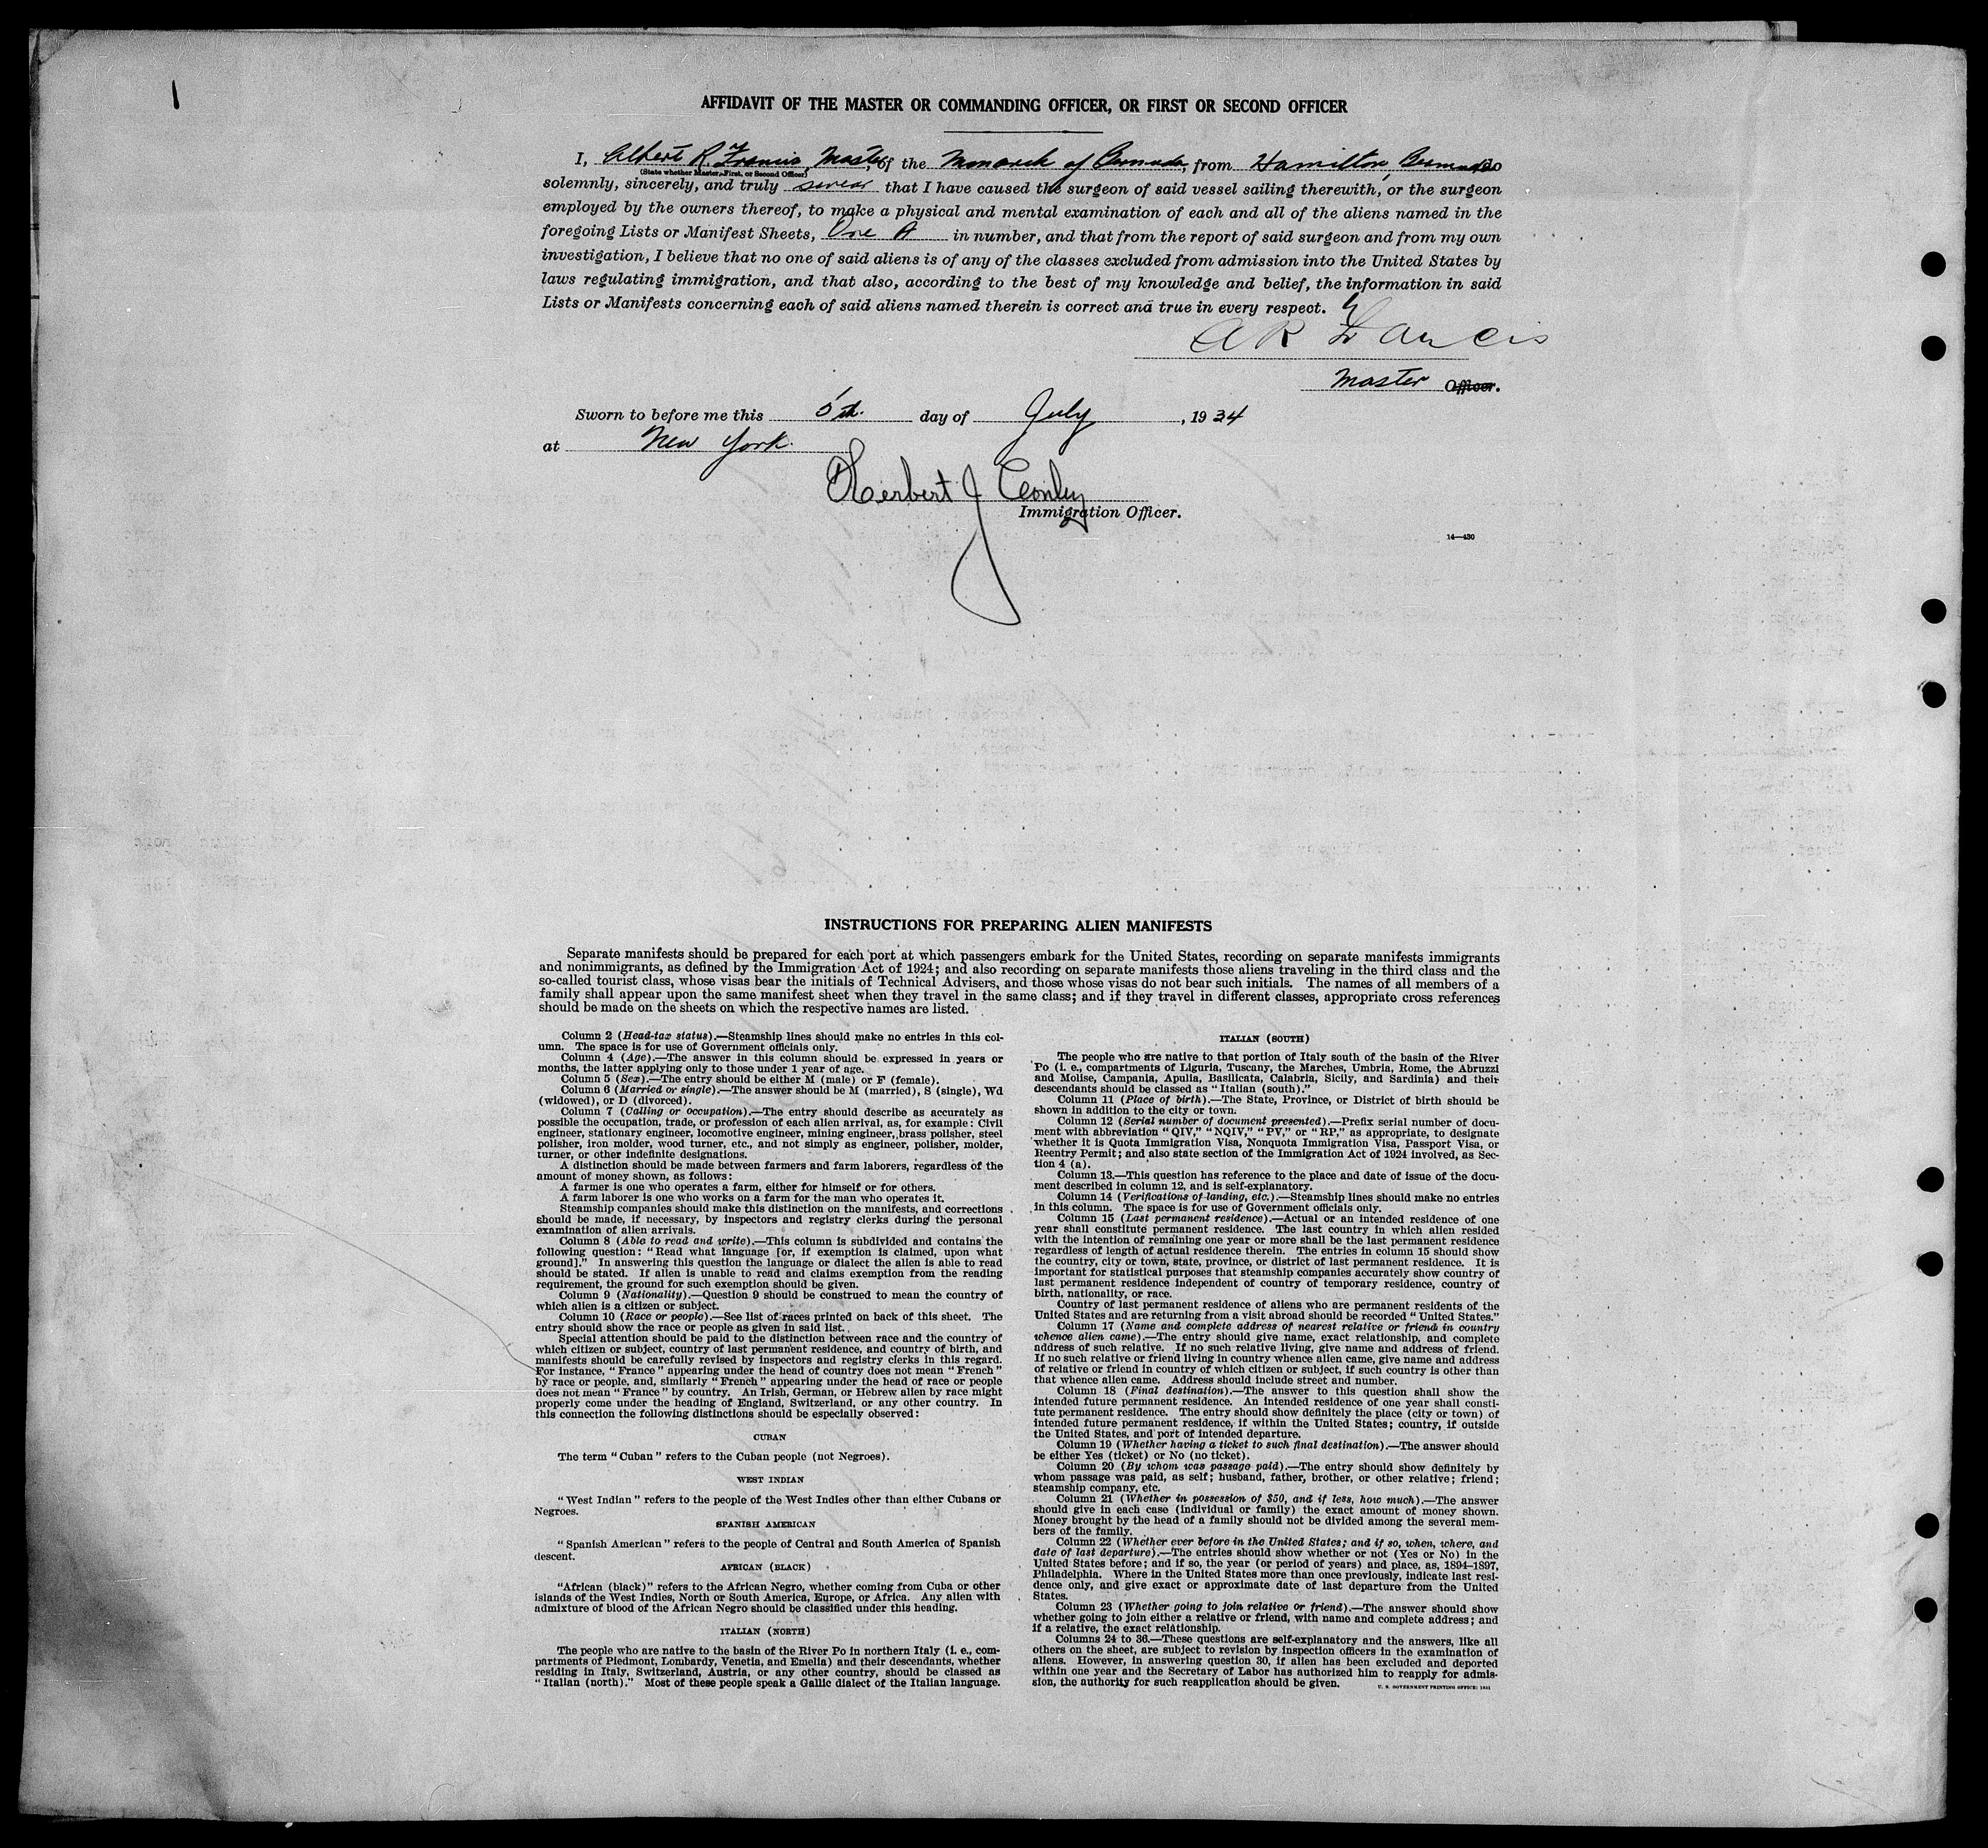 1
AFFIDAVIT OF THE MASTER OR COMMANDING OFFICER, OR FIRST OR SECOND OFFICER
I, Albert R. Francis, Master, of the Monarch of Bermuda, from Hamilton, Bermuda do
(State whether Master, First, or Second Officer)
solemnly, sincerely, and truly swear that I have caused the surgeon of said vessel sailing therewith, or the surgeon
employed by the owners thereof, to make a physical and mental examination of each and all of the aliens named in the
foregoing Lists or Manifest Sheets, One A in number, and that from the report of said surgeon and from my own
investigation, I believe that no one of said aliens is of any of the classes excluded from admission into the United States by
laws regulating immigration, and that also, according to the best of my knowledge and belief, the information in said
Lists or Manifests concerning each of said aliens named therein is correct and true in every respect.
A R Francis
Master Officer.
Sworn to before me this 5th. day of July, 1934
at New York.
Herbert J Conley
Immigration Officer.
14—430
INSTRUCTIONS FOR PREPARING ALIEN MANIFESTS
Separate manifests should be prepared for each port at which passengers embark for the United States, recording on separate manifests immigrants
and nonimmigrants, as defined by the Immigration Act of 1924; and also recording on separate manifests those aliens traveling in the third class and the
so-called tourist class, whose visas bear the initials of Technical Advisers, and those whose visas do not bear such initials. The names of all members of a
family shall appear upon the same manifest sheet when they travel in the same class; and if they travel in different classes, appropriate cross references
should be made on the sheets on which the respective names are listed.
Column 2 (Head-tax status).—Steamship lines should make no entries in this col-
umn. The space is for use of Government officials only.
Column 4 (Age).—The answer in this column should be expressed in years or
months, the latter applying only to those under 1 year of age.
Column 5 (Sex).—The entry should be either M (male) or F (female).
Column 6 (Married or single).—The answer should be M (married), S (single), Wd
(widowed), or D (divorced).
Column 7 (Calling or occupation).—The entry should describe as accurately as
possible the occupation, trade, or profession of each alien arrival, as, for example: Civil
engineer, stationary engineer, locomotive engineer, mining engineer, brass polisher, steel
polisher, iron molder, wood turner, etc., and not simply as engineer, polisher, molder,
turner, or other indefinite designations.
A distinction should be made between farmers and farm laborers, regardless of the
amount of money shown, as follows:
A farmer is one who operates a farm, either for himself or for others.
A farm laborer is one who works on a farm for the man who operates it.
Steamship companies should make this distinction on the manifests, and corrections
should be made, if necessary, by inspectors and registry clerks during the personal
examination of alien arrivals.
Column 8 (Able to read and write).—This column is subdivided and contains the
following question: "Read what language [or, if exemption is claimed, upon what
ground]." In answering this question the language or dialect the alien is able to read
should be stated. If alien is unable to read and claims exemption from the reading
requirement, the ground for such exemption should be given.
Column 9 (Nationality).—Question 9 should be construed to mean the country of
which alien is a citizen or subject.
Column 10 (Race or people).—See list of races printed on back of this sheet. The
entry should show the race or people as given in said list.
Special attention should be paid to the distinction between race and the country of
which citizen or subject, country of last permanent residence, and country of birth, and
manifests should be carefully revised by inspectors and registry clerks in this regard.
For instance, "France" appearing under the head of country does not mean "French"
by race or people, and, similarly "French" appearing under the head of race or people
does not mean "France" by country. An Irish, German, or Hebrew alien by race might
properly come under the heading of England, Switzerland, or any other country. In
this connection the following distinctions should be especially observed:
CUBAN
The term "Cuban" refers to the Cuban people (not Negroes).
WEST INDIAN
"West Indian" refers to the people of the West Indies other than either Cubans or
Negroes.
SPANISH AMERICAN
"Spanish American" refers to the people of Central and South America of Spanish
descent.
AFRICAN (BLACK)
"African (black)" refers to the African Negro, whether coming from Cuba or other
islands of the West Indies, North or South America, Europe, or Africa. Any alien with
admixture of blood of the African Negro should be classified under this heading.
ITALIAN (NORTH)
The people who are native to the basin of the River Po in northern Italy (i. e., com-
partments of Piedmont, Lombardy, Venetia, and Emelia) and their descendants, whether
residing in Italy, Switzerland, Austria, or any other country, should be classed as
"Italian (north)." Most of these people speak a Gallic dialect of the Italian language.
ITALIAN (SOUTH)
The people who are native to that portion of Italy south of the basin of the River
Po (i. e., compartments of Liguria, Tuscany, the Marches, Umbria, Rome, the Abruzzi
and Molise, Campania, Apulia, Basilicata, Calabria, Sicily, and Sardinia) and their
descendants should be classed as "Italian (south)."
Column 11 (Place of birth).—The State, Province, or District of birth should be
shown in addition to the city or town.
Column 12 (Serial number of document presented).—Prefix serial number of docu-
ment with abbreviation "QIV," "NQIV," "PV," or "RP," as appropriate, to designate
whether it is Quota Immigration Visa, Nonquota Immigration Visa, Passport Visa, or
Reentry Permit; and also state section of the Immigration Act of 1924 involved, as Sec-
tion 4 (a).
Column 13.—This question has reference to the place and date of issue of the docu-
ment described in column 12, and is self-explanatory.
Column 14 (Verifications of landing, etc.).—Steamship lines should make no entries
in this column. The space is for use of Government officials only.
Column 15 (Last permanent residence).—Actual or an intended residence of one
year shall constitute permanent residence. The last country in which alien resided
with the intention of remaining one year or more shall be the last permanent residence
regardless of length of actual residence therein. The entries in column 15 should show
the country, city or town, state, province, or district of last permanent residence. It is
important for statistical purposes that steamship companies accurately show country of
last permanent residence independent of country of temporary residence, country of
birth, nationality, or race.
Country of last permanent residence of aliens who are permanent residents of the
United States and are returning from a visit abroad should be recorded "United States."
Column 17 (Name and complete address of nearest relative or friend in country
whence alien came).—The entry should give name, exact relationship, and complete
address of such relative. If no such relative living, give name and address of friend.
If no such relative or friend living in country whence alien came, give name and address
of relative or friend in country of which citizen or subject, if such country is other than
that whence alien came. Address should include street and number.
Column 18 (Final destination).—The answer to this question shall show the
intended future permanent residence. An intended residence of one year shall consti-
tute permanent residence. The entry should show definitely the place (city or town) of
intended future permanent residence, if within the United States; country, if outside
the United States, and port of intended departure.
Column 19 (Whether having a ticket to such final destination).—The answer should
be either Yes (ticket) or No (no ticket).
Column 20 (By whom was passage paid).—The entry should show definitely by
whom passage was paid, as self; husband, father, brother, or other relative; friend;
steamship company, etc.
Column 21 (Whether in possession of $50, and if less, how much).—The answer
should give in each case (individual or family) the exact amount of money shown.
Money brought by the head of a family should not be divided among the several mem-
bers of the family.
Column 22 (Whether ever before in the United States; and if so, when, where, and
date of last departure).—The entries should show whether or not (Yes or No) in the
United States before; and if so, the year (or period of years) and place, as, 1894–1897,
Philadelphia. Where in the United States more than once previously, indicate last resi-
dence only, and give exact or approximate date of last departure from the United
States.
Column 23 (Whether going to join relative or friend).—The answer should show
whether going to join either a relative or friend, with name and complete address; and
if a relative, the exact relationship.
Columns 24 to 36.—These questions are self-explanatory and the answers, like all
others on the sheet, are subject to revision by inspection officers in the examination of
aliens. However, in answering question 30, if alien has been excluded and deported
within one year and the Secretary of Labor has authorized him to reapply for admis-
sion, the authority for such reapplication should be given.
U. S. GOVERNMENT PRINTING OFFICE: 1931